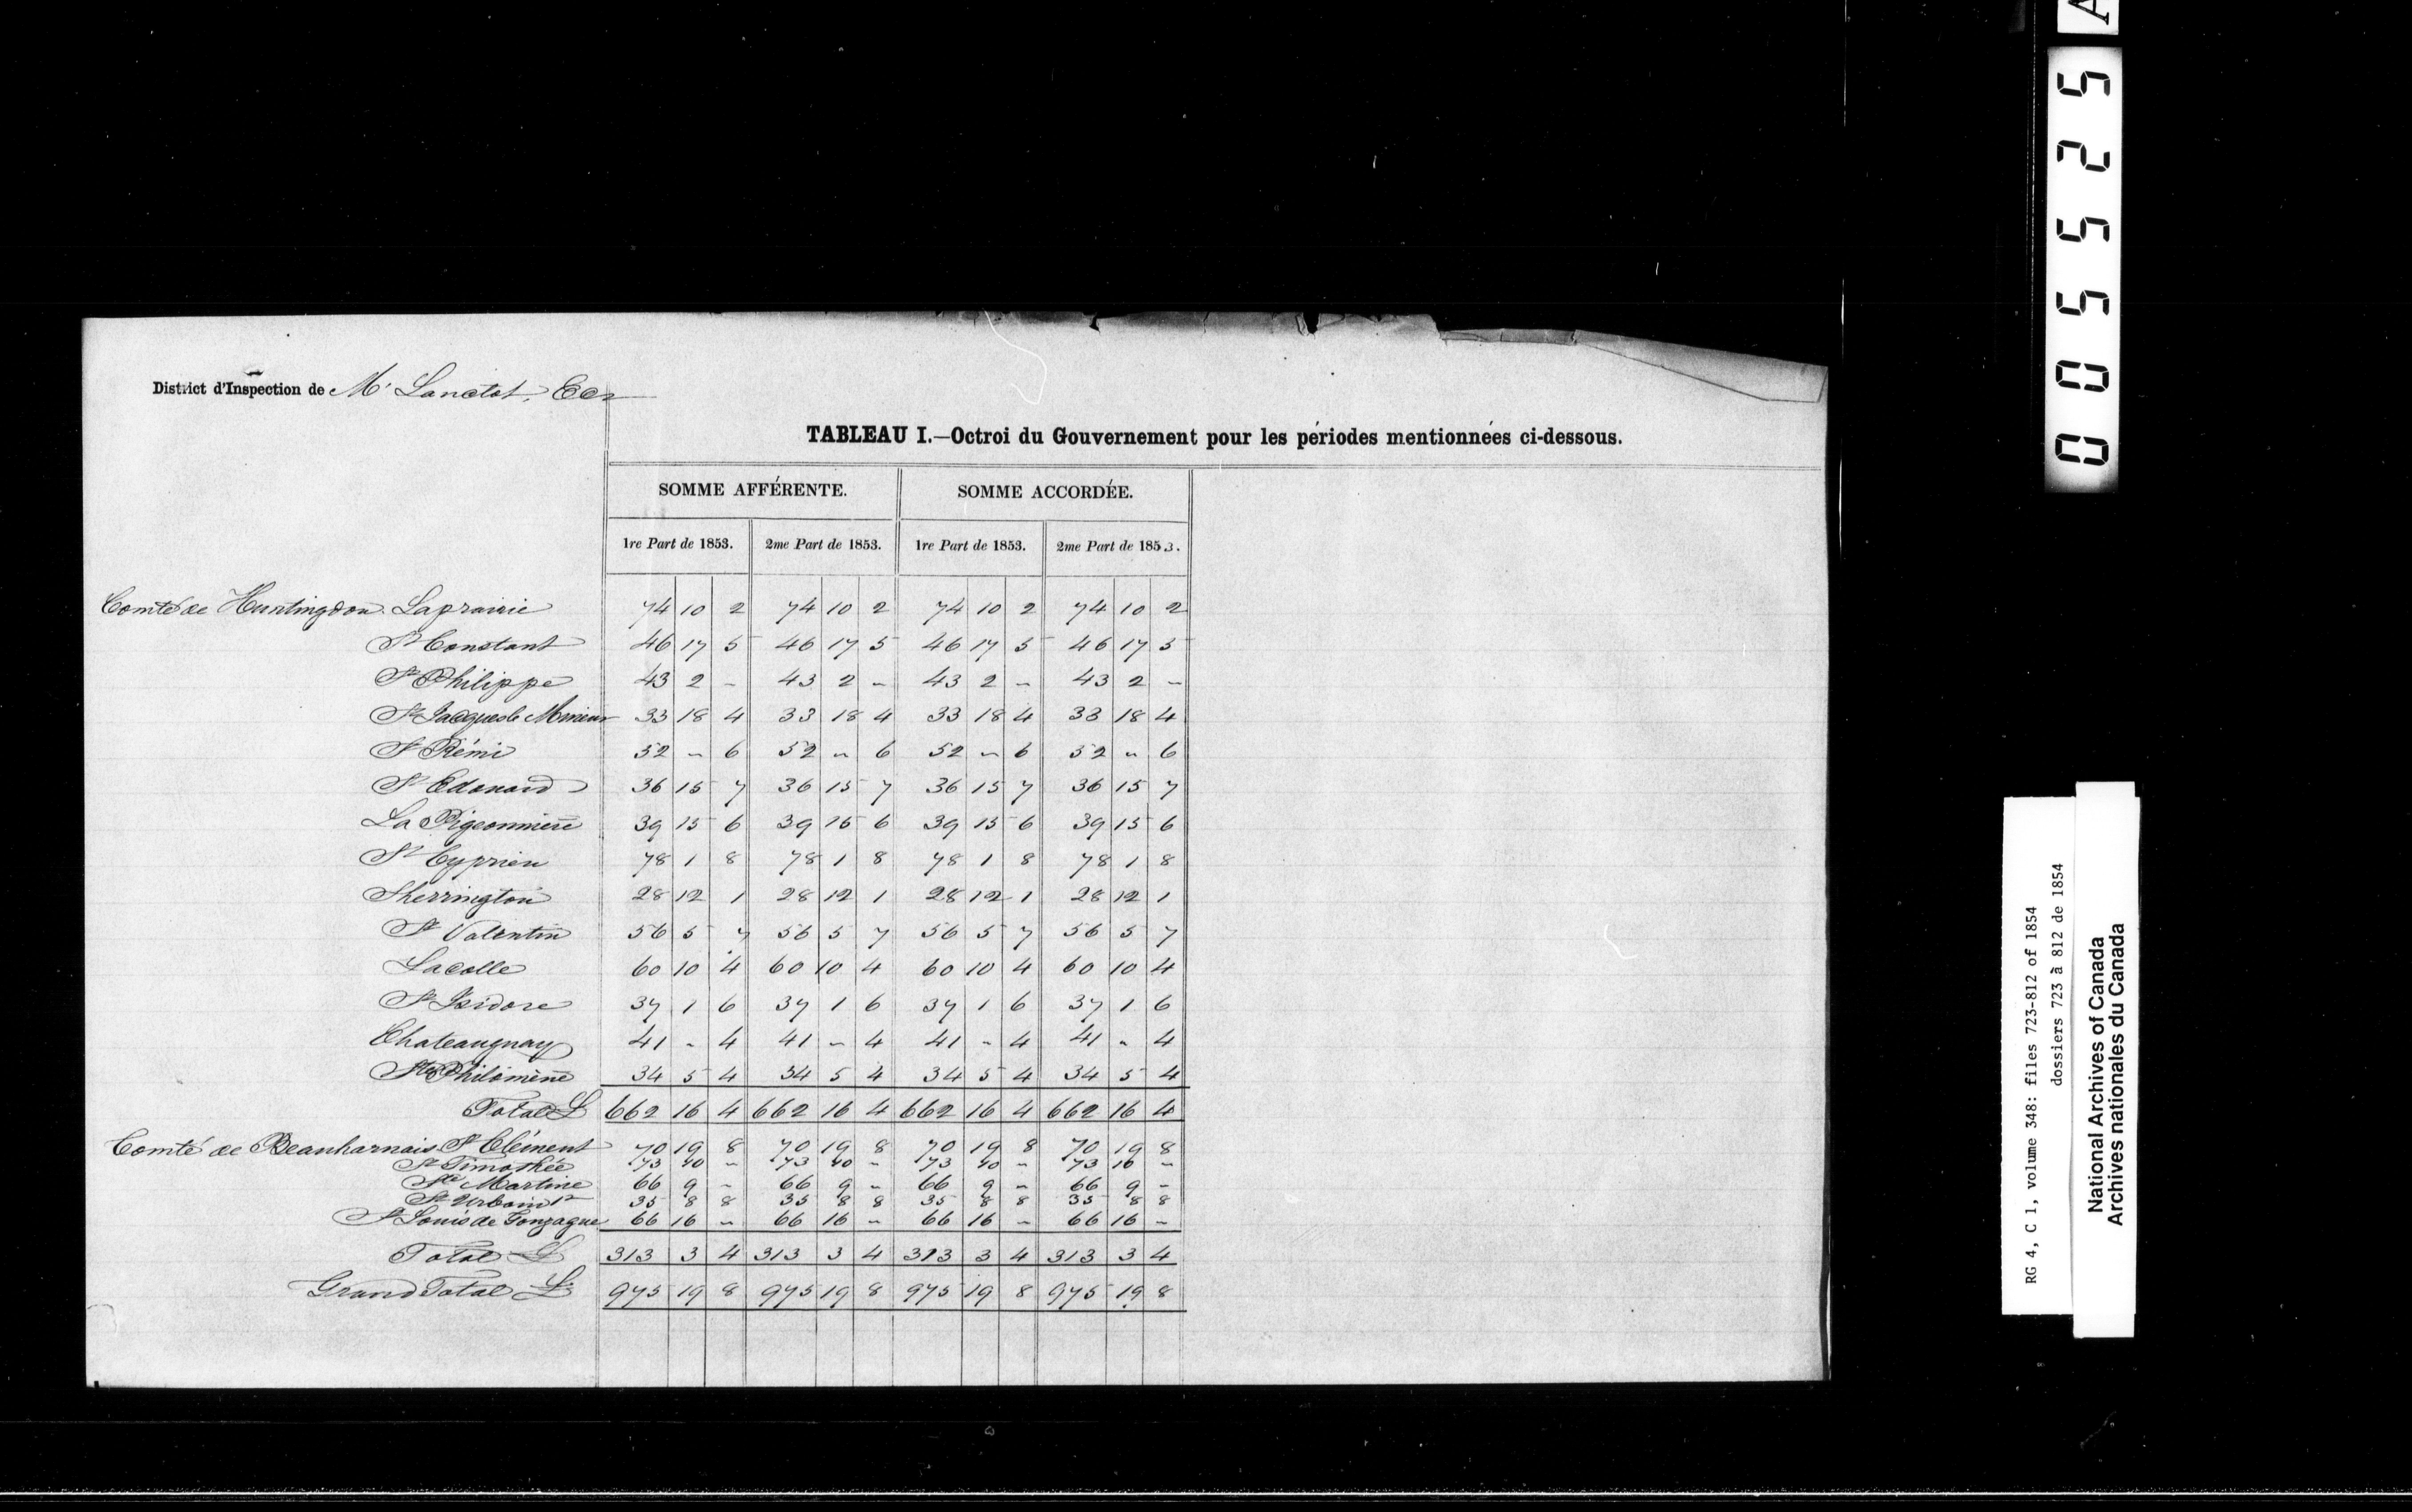 District d'Inspection de Mr Lanctot, Ecr
TABLEAU I.—Octroi du Gouvernement pour les périodes mentionnées ci-dessous.
SOMME AFFÉRENTE. SOMME ACCORDÉE.
1re Part de 1853. 2me Part de 1853. 1re Part de 1853. 2me Part de 1853.
Comté de Huntingdon. Laprairie 74 10 2 74 10 2 74 10 2 74 10 2
St Constant 46 17 5 46 17 5 46 17 5 46 17 5
St Philippe 43 2 - 43 2 - 43 2 - 43 2 -
St Jacques le Mineur 33 18 4 33 18 4 33 18 4 33 18 4
St Rémi 52 - 6 52 - 6 52 - 6 52 - 6
St Edouard 36 15 7 36 15 7 36 15 7 36 15 7
La Pigeonnière 39 15 6 39 15 6 39 15 6 39 15 6
St Cyprien 78 1 8 78 1 8 78 1 8 78 1 8
Sherrington 28 12 1 28 12 1 28 12 1 28 12 1
St Valentin 56 5 7 56 5 7 56 5 7 56 5 7
Lacolle 60 10 4 60 10 4 60 10 4 60 10 4
St Isidore 37 1 6 37 1 6 37 1 6 37 1 6
Chateauguay 41 - 4 41 - 4 41 - 4 41 - 4
Ste Philomène 34 5 4 34 5 4 34 5 4 34 5 4
Total £ 662 16 4 662 16 4 662 16 4 662 16 4
Comté de Beauharnais St Clément 70 19 8 70 19 8 70 19 8 70 19 8
St Timothée 73 10 - 73 10 - 73 10 - 73 10 -
Ste Martine 66 9 - 66 9 - 66 9 - 66 9 -
St Urbain 1r 35 8 8 35 8 8 35 8 8 35 8 8
St Louis de Gonzague 66 16 - 66 16 - 66 16 - 66 16 -
Total £ 313 3 4 313 3 4 313 3 4 313 3 4
Grand Total £ 975 19 8 975 19 8 975 19 8 975 19 8
005525
RG 4, C 1, volume 348: files 723-812 of 1854
dossiers 723 à 812 de 1854
National Archives of Canada
Archives nationales du Canada